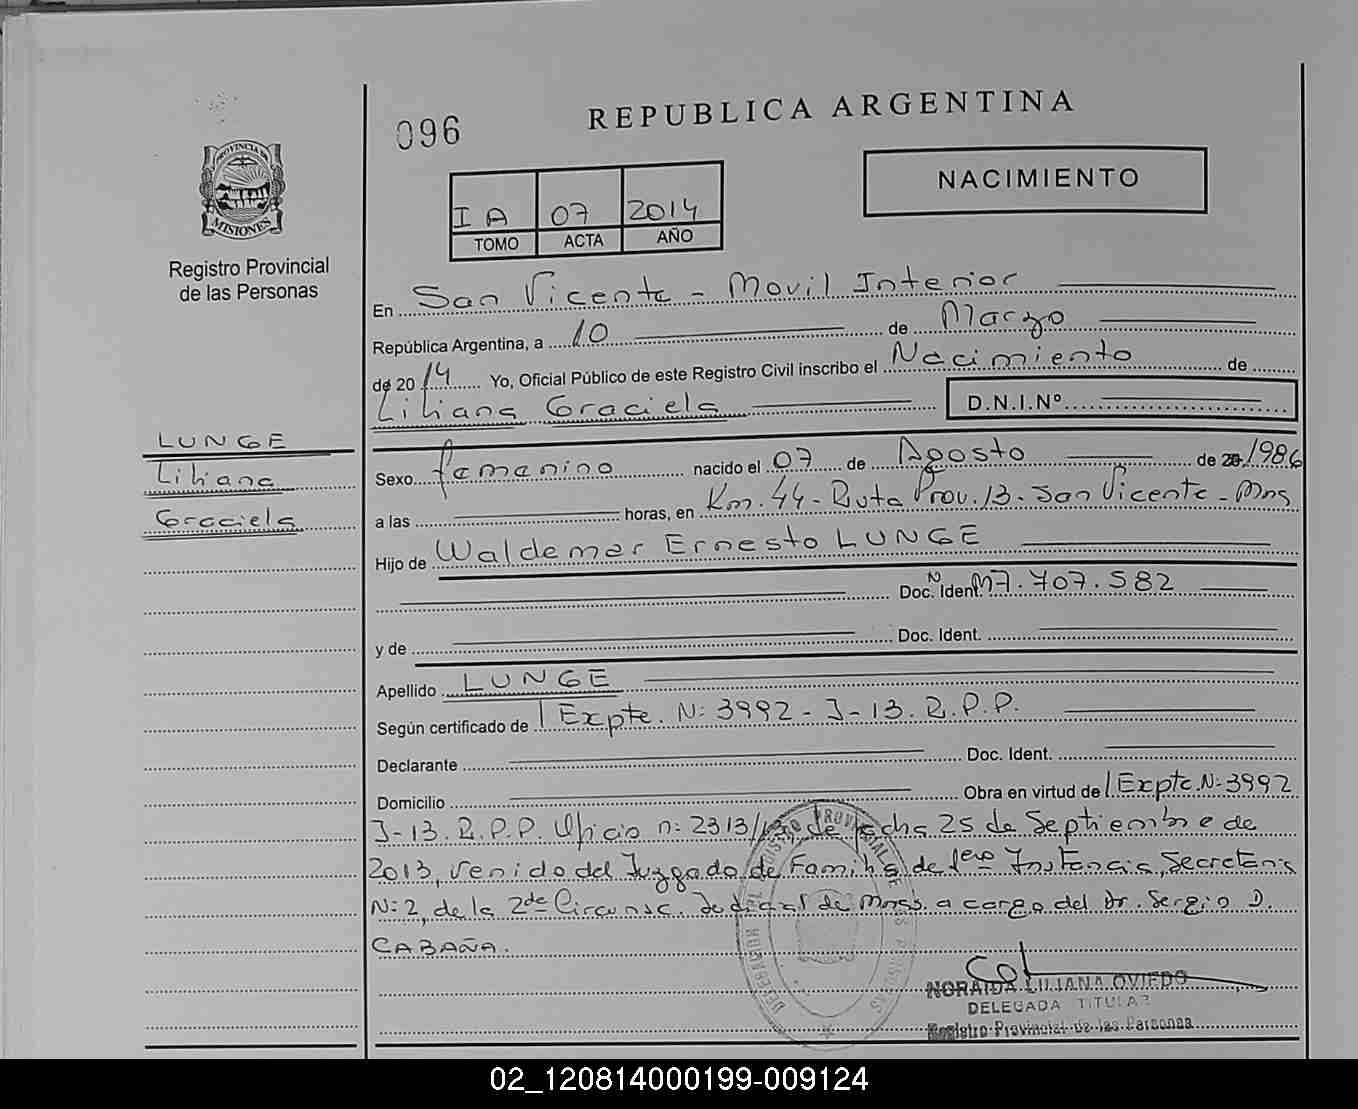 096
REPUBLICA ARGENTINA
NACIMIENTO
I A 07 2014
TOMO ACTA AÑO
PROVINCIA DE
MISIONES
Registro Provincial
de las Personas
LUNGE
Liliana
Graciela
En San Vicente - Movil Interior
República Argentina, a 10 de Marzo
de 20 14 Yo, Oficial Público de este Registro Civil inscribo el Nacimiento de
Liliana Graciela D.N.I.Nº
Sexo femenino nacido el 07 de Agosto de 20 1986
a las horas, en Km. 44 - Ruta Prov. 13 - San Vicente - Mns
Hijo de Waldemar Ernesto LUNGE
Doc. Ident. N M7.707.582
y de Doc. Ident.
Apellido LUNGE
Según certificado de Expte. N: 3992 - J - 13. R.P.P.
Declarante Doc. Ident.
Domicilio Obra en virtud de Expte. N: 3992
J-13. R.P.P. Oficio n: 2313/13 de fecha 25 de Septiembre de
2013, venido del Juzgado de Familia de 1ero Instancia, Secretaria
N: 2, de la 2de Circunsc. Judicial de Mnes. a cargo del Dr. Sergio D.
CABAÑA.
NORAIDA LILIANA OVIEDO
DELEGADA TITULAR
Registro Provincial de las Personas
02_120814000199-009124